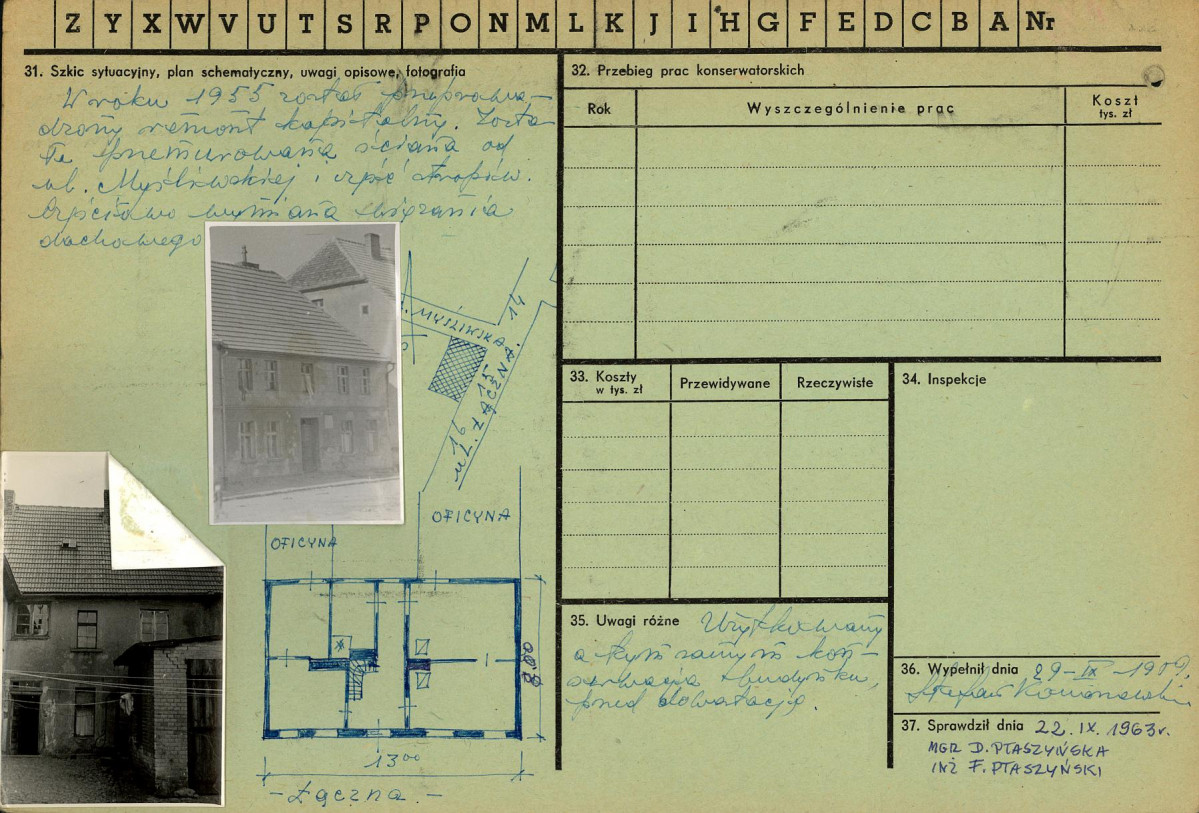 Z Y X W V U T S R P O N M L K J I H G F E D C B A Nr
31. Szkic sytuacyjny, plan schematyczny, uwagi opisowe, fotografia
W roku 1955 został przeprowa-
dzony remont kapitalny. Zosta-
ła przemurowana ściana od
ul. Myśliwskiej i część stropów.
Częściowo wymiana wiązania
dachowego
MYŚLIWSKA
14
15
16
UL. ŁĄCZNA.
OFICYNA
OFICYNA
8,00
13,00
- Łączna. -
32. Przebieg prac konserwatorskich
Rok
Wyszczególnienie prac
Koszt
tys. zł
33. Koszty
w tys. zł
Przewidywane
Rzeczywiste
34. Inspekcje
35. Uwagi różne Użytkowany
a tym samym kon-
serwacja budynku,
przed dewastacją.
36. Wypełnił dnia 29-IX-
Stefan
37. Sprawdził dnia 22.IX.1963r.
MGR D. PTASZYŃSKA
INŻ F. PTASZYŃSKI